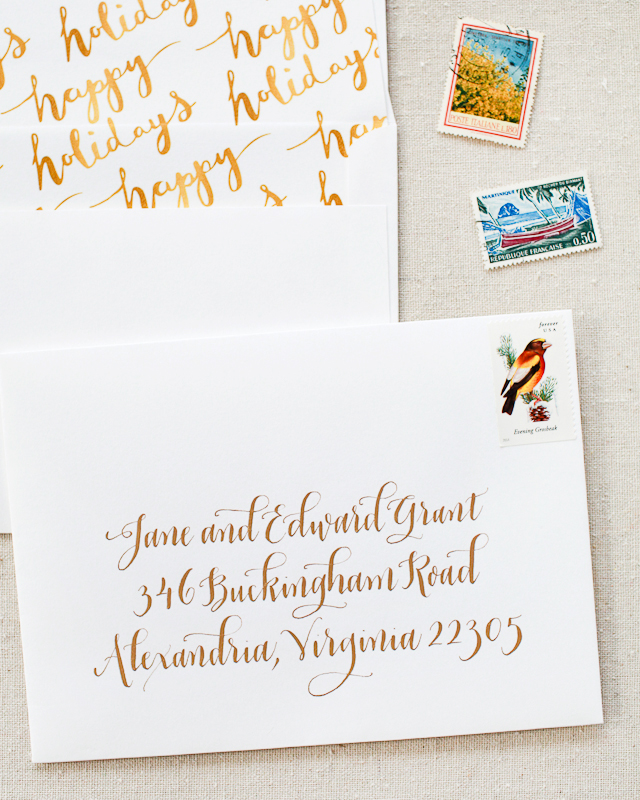 holidays
happy
holidays
happy
holidays
happy
happy
POSTE ITALIANE L.180
MARTINIQUE
0,50
RÉPUBLIQUE FRANÇAISE
forever
USA
Evening Grosbeak
Jane and Edward Grant
346 Buckingham Road
Alexandria, Virginia 22305